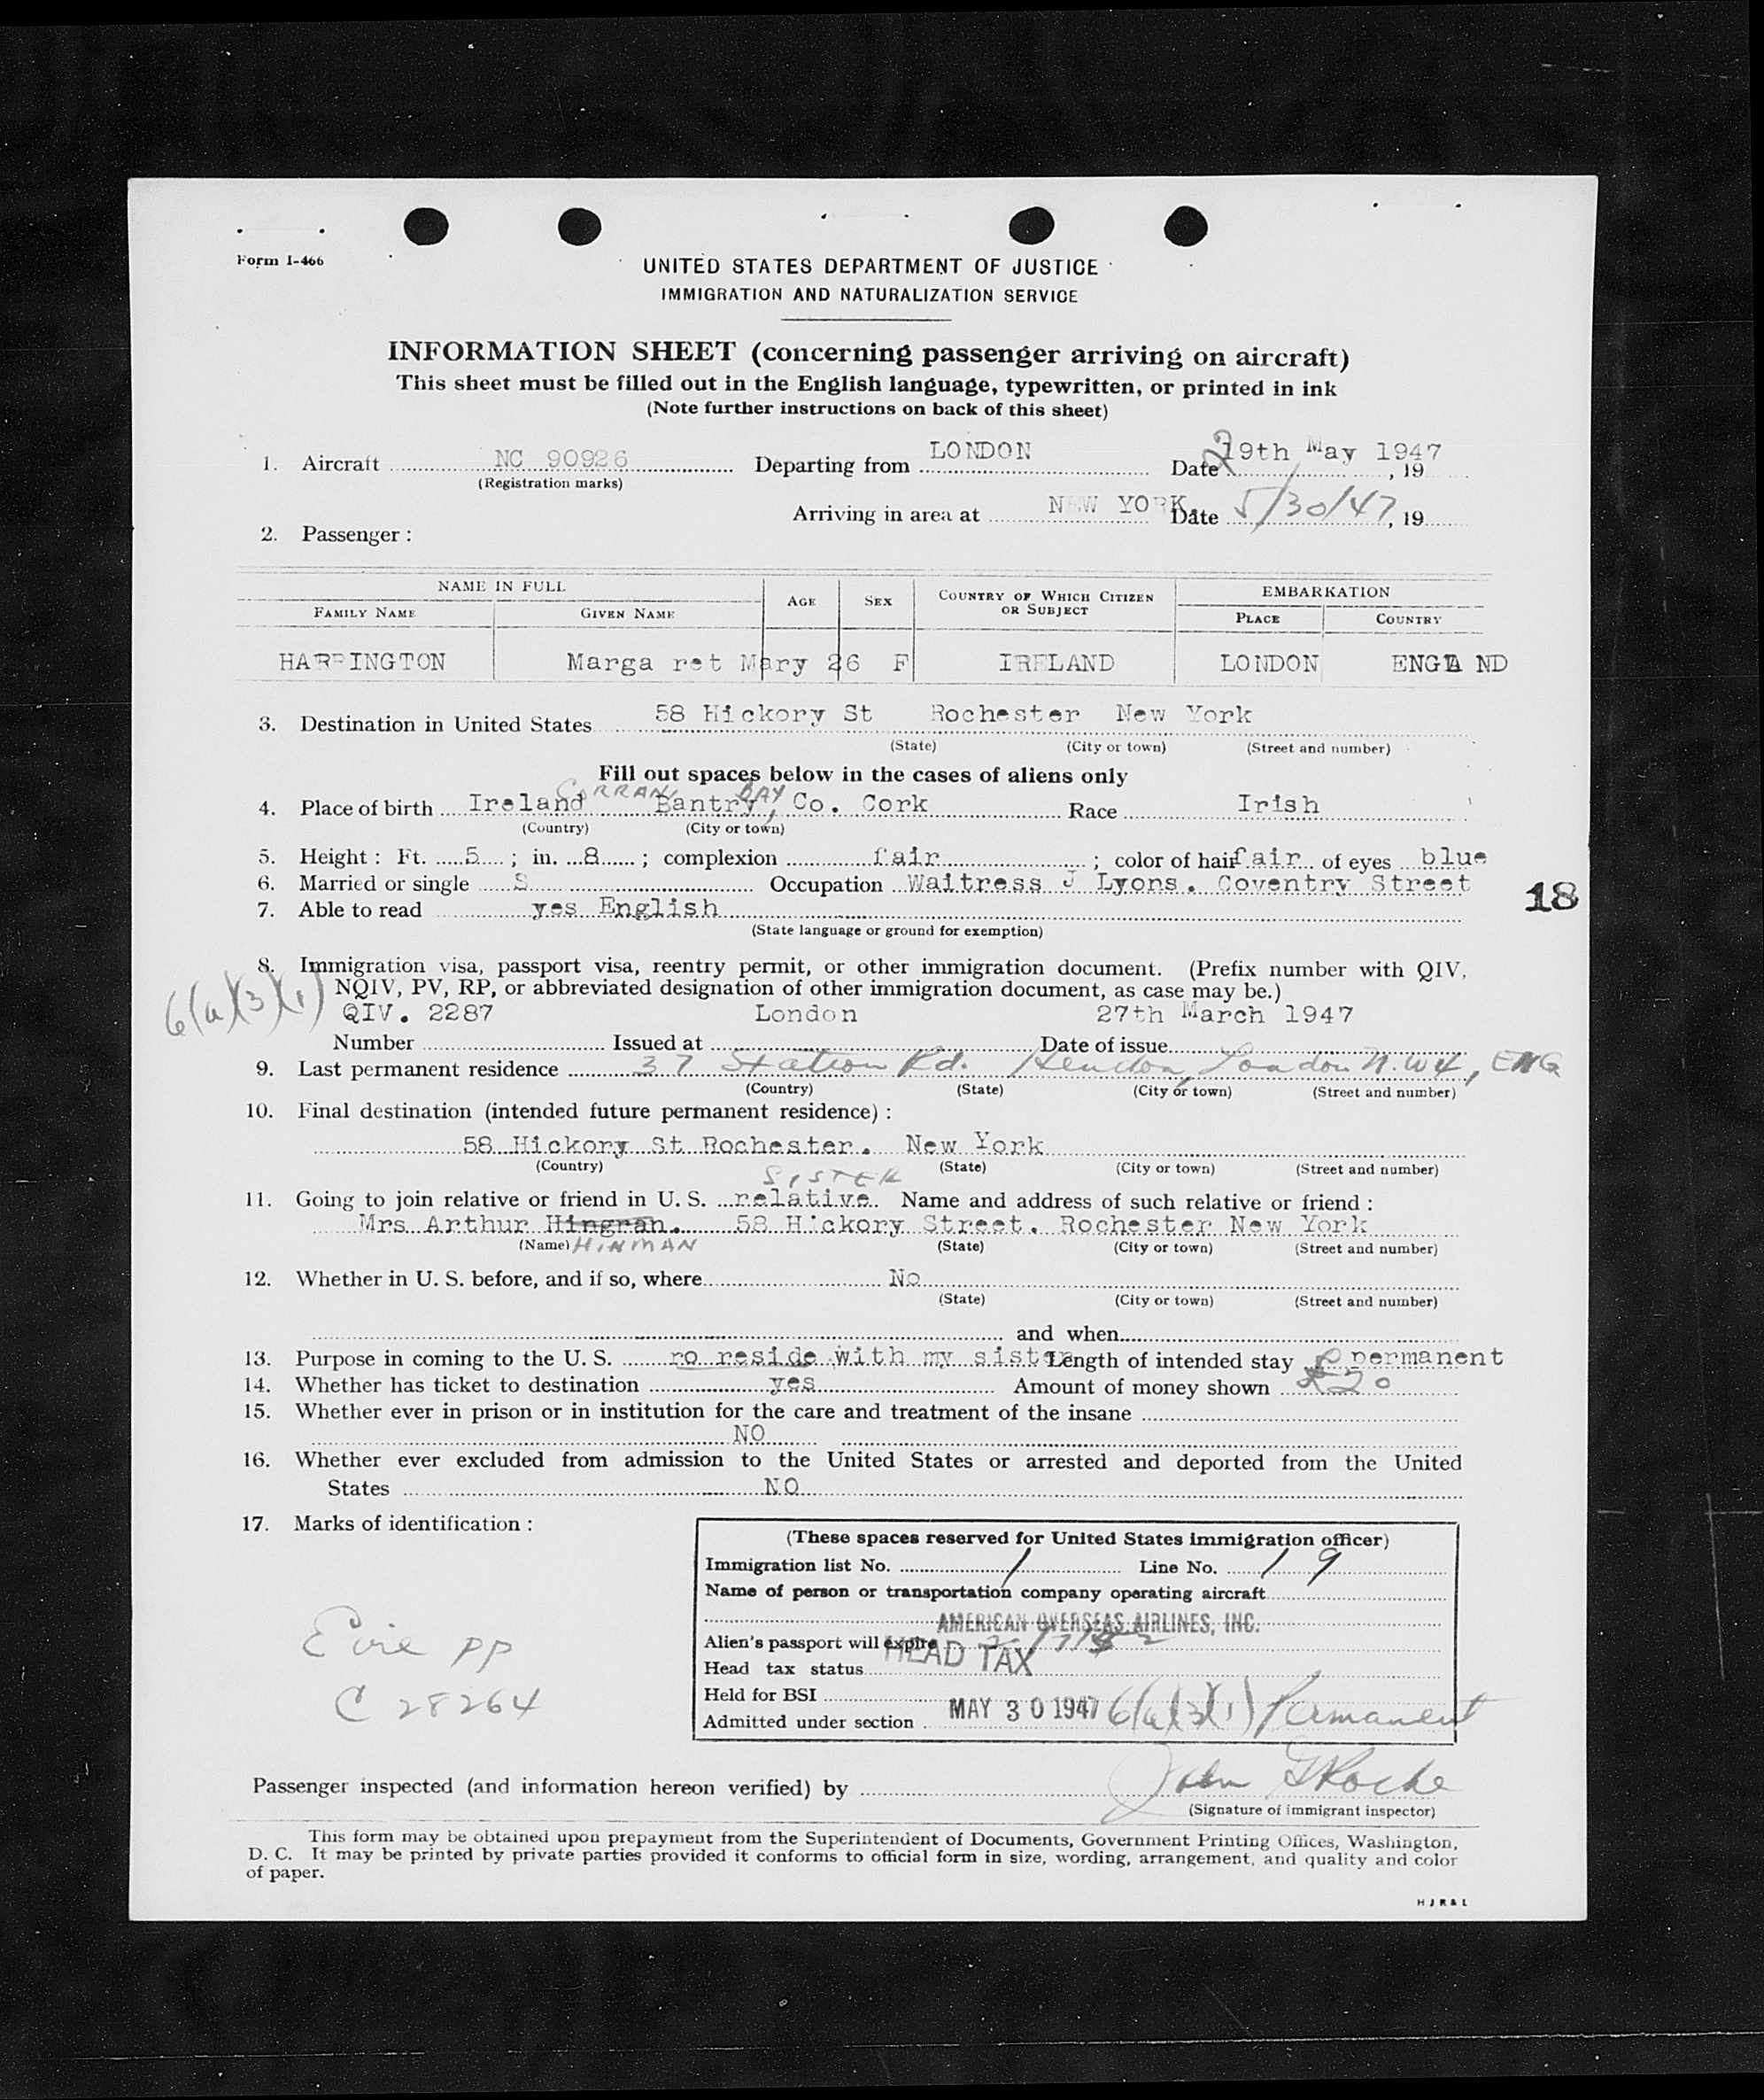 Form I-466
UNITED STATES DEPARTMENT OF JUSTICE
IMMIGRATION AND NATURALIZATION SERVICE
INFORMATION SHEET (concerning passenger arriving on aircraft)
This sheet must be filled out in the English language, typewritten, or printed in ink
(Note further instructions on back of this sheet)
1. Aircraft NC 90926 Departing from LONDON Date 29th May 1947, 19
(Registration marks)
Arriving in area at NEW YORK. Date 5/30/47, 19
2. Passenger :
NAME IN FULL AGE SEX COUNTRY OF WHICH CITIZEN OR SUBJECT EMBARKATION
FAMILY NAME GIVEN NAME PLACE COUNTRY
HARRINGTON Marga ret Mary 26 F IRELAND LONDON ENGLA ND
3. Destination in United States 58 Hickory St Rochester New York
(State) (City or town) (Street and number)
Fill out spaces below in the cases of aliens only
CORRAN BAY
4. Place of birth Ireland Bantry, Co. Cork Race Irish
(Country) (City or town)
5. Height : Ft. 5 ; in. 8 ; complexion fair ; color of hair fair of eyes blue
6. Married or single S Occupation Waitress J Lyons. Coventry Street
18
7. Able to read yes English
(State language or ground for exemption)
8. Immigration visa, passport visa, reentry permit, or other immigration document. (Prefix number with QIV,
NQIV, PV, RP, or abbreviated designation of other immigration document, as case may be.)
6(a)(3)(1) QIV. 2287 London 27th March 1947
Number Issued at Date of issue
9. Last permanent residence 37 Station Rd. Hendon, London N.W4, ENG
(Country) (State) (City or town) (Street and number)
10. Final destination (intended future permanent residence) :
58 Hickory St Rochester. New York
(Country) (State) (City or town) (Street and number)
SISTER
11. Going to join relative or friend in U. S. relative Name and address of such relative or friend :
Mrs Arthur Hingran. 58 Hickory Street. Rochester New York
(Name) HINMAN (State) (City or town) (Street and number)
12. Whether in U. S. before, and if so, where No
(State) (City or town) (Street and number)
and when
13. Purpose in coming to the U. S. ro reside with my sister Length of intended stay permanent
14. Whether has ticket to destination yes Amount of money shown £20
15. Whether ever in prison or in institution for the care and treatment of the insane
NO
16. Whether ever excluded from admission to the United States or arrested and deported from the United
States NO
17. Marks of identification :
(These spaces reserved for United States immigration officer)
Immigration list No. 1 Line No. 19
Name of person or transportation company operating aircraft
AMERICAN OVERSEAS AIRLINES, INC.
Alien's passport will expire
Head tax status HEAD TAX
Held for BSI
Admitted under section MAY 30 1947 6(a)(3)(1) Permanent
Eire pp
C 28264
Passenger inspected (and information hereon verified) by John G Roche
(Signature of immigrant inspector)
This form may be obtained upon prepayment from the Superintendent of Documents, Government Printing Offices, Washington,
D. C. It may be printed by private parties provided it conforms to official form in size, wording, arrangement, and quality and color
of paper.
H J R & L